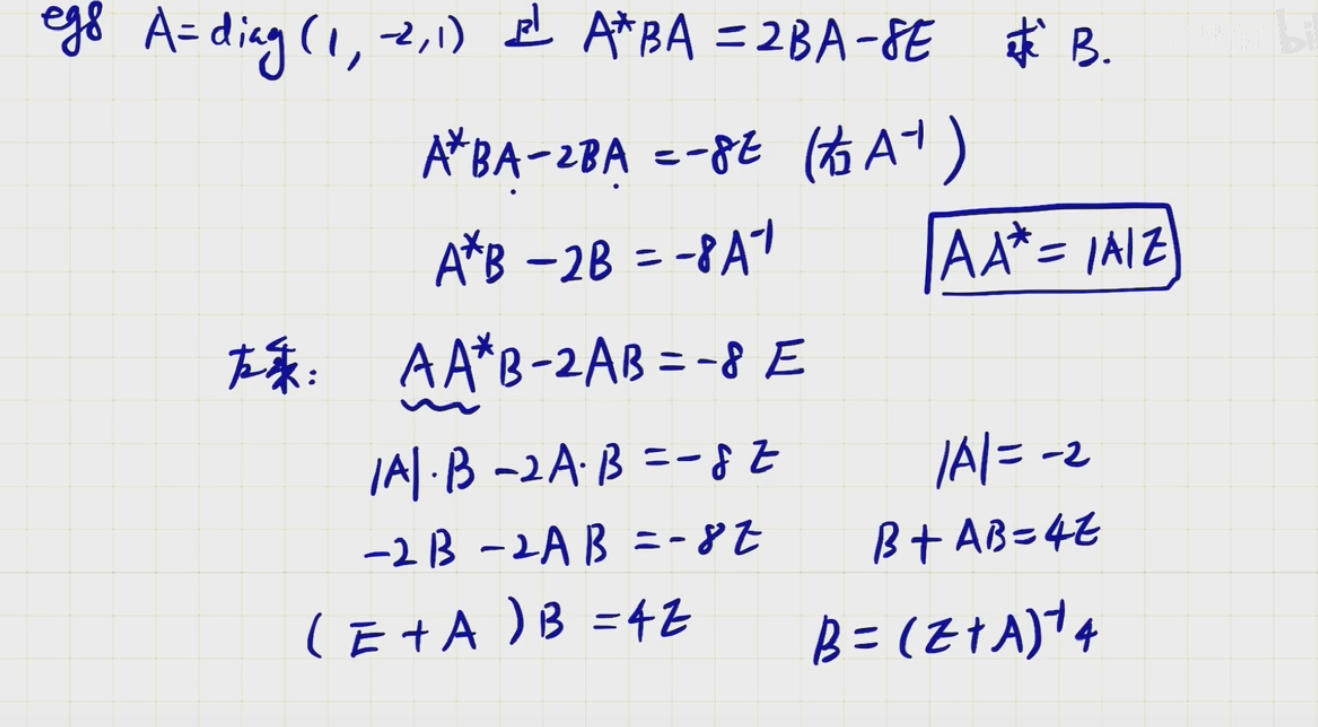 eg8 A=diag(1,-2,1) 且 A*BA=2BA-8E 求 B.
A*BA-2BA=-8E (右A⁻¹)
A*B-2B=-8A⁻¹ AA*=|A|E
左乘: AA*B-2AB=-8 E
|A|·B-2A·B=-8E |A|=-2
-2B-2AB=-8E B+AB=4E
(E+A)B=4E B=(E+A)⁻¹4